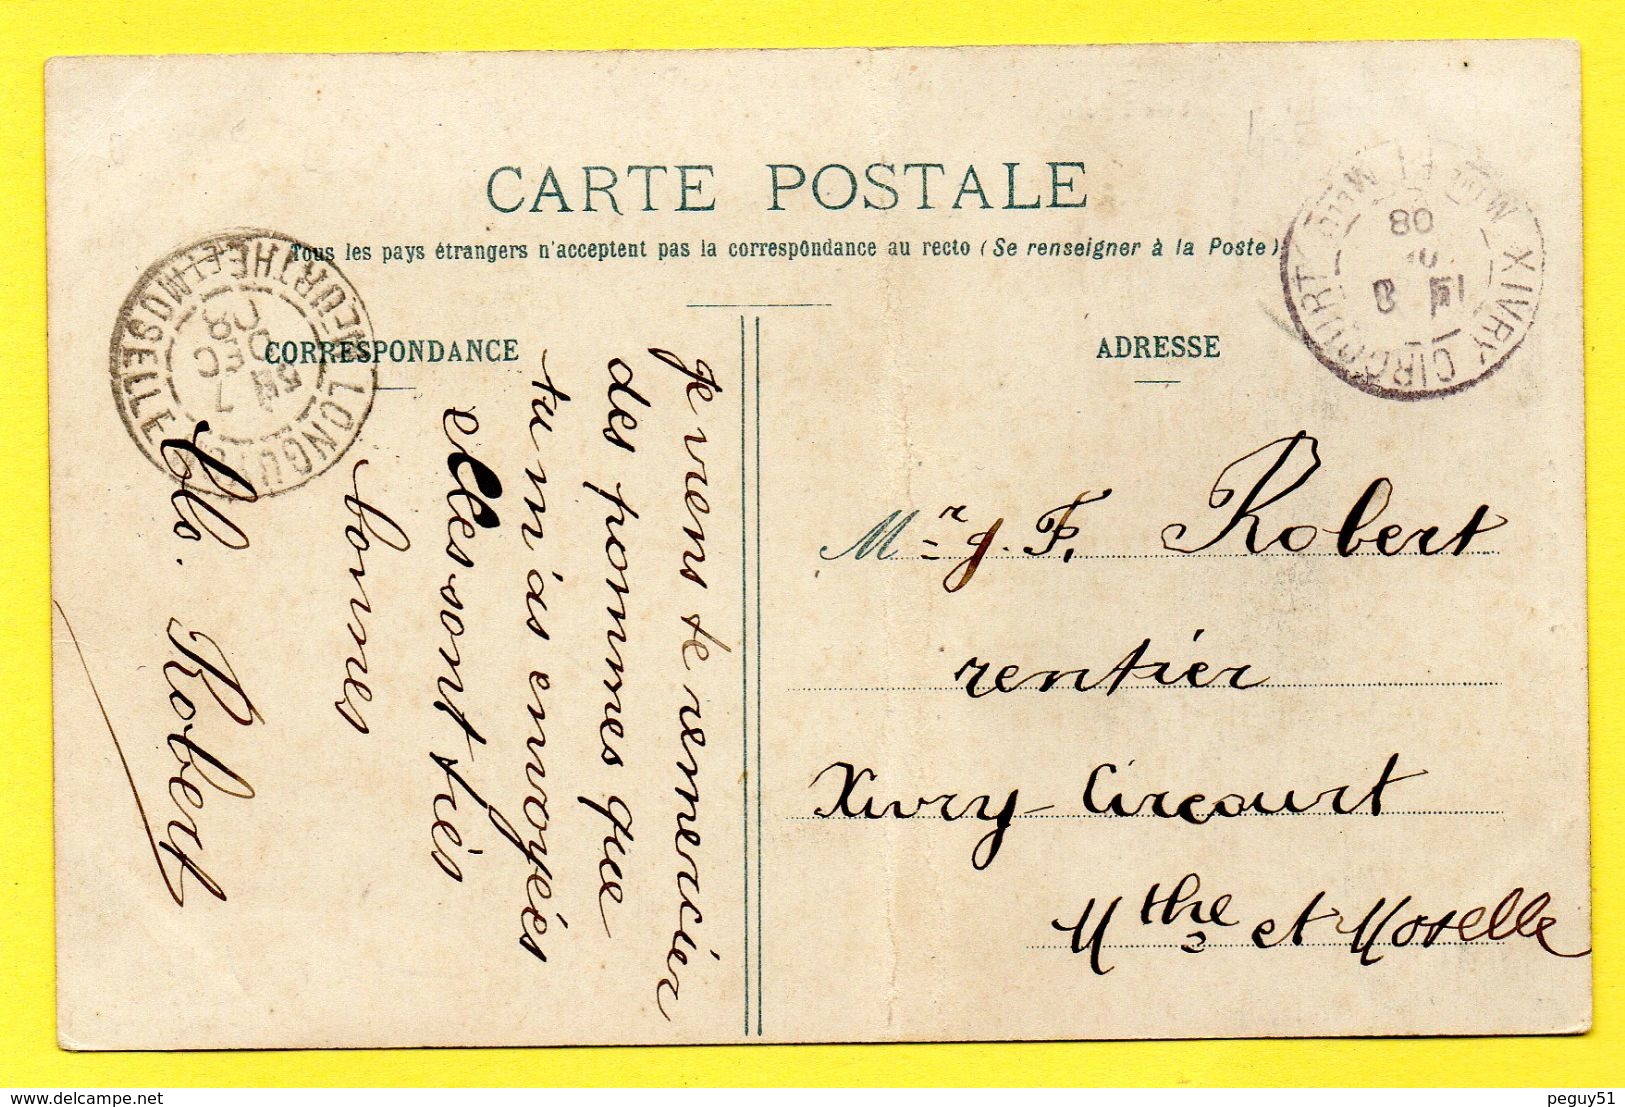 CARTE POSTALE
Tous les pays étrangers n'acceptent pas la correspondance au recto (Se renseigner à la Poste)
CORRESPONDANCE
ADRESSE
je viens te remercier
des pommes que
tu m'as envoyées
elles sont très
bonnes
Robert
Mr J. F. Robert
rentier
Xivry-Circourt
Mthe et Moselle
MEURTHE ET MOSELLE
XIVRY CIRCOURT
08
www.delcampe.net
peguy51